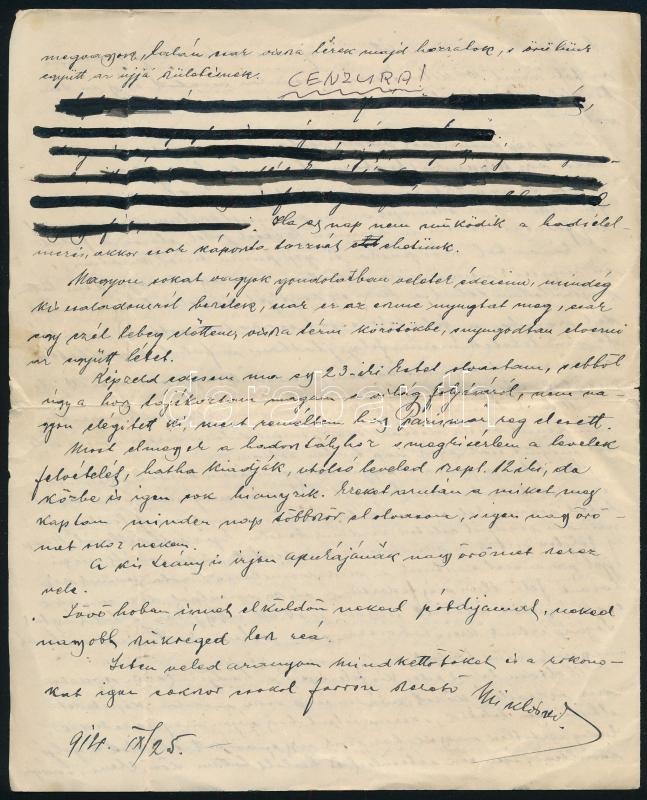 megvagyok, talán csak vissza térek majd hozzátok, s örülünk
együtt az újjá születésnek.
CENZURA!
Ha egy nap nem működik a hadiélel-
mezés, akkor csak káposzta torzsát ehetünk.
Nagyon sokat vagyok gondolatban veletek édeseim, mindég
kis családomról beszélek, csak ez az eszme nyugtat meg, csak
egy szél lebeg előttem, vissza térni körötökbe, s nyugodtan élvezni
az együtt létet.
Képzeld édesem ma egy 23-iki Estet olvastam, s ebből
úgy a hogy tájékoztam magam a világ folyásáról, nem na-
gyon elégitett ki, mert reméltem hogy Párizs már rég el esett.
Most elmegyek a hadosztályhoz s megkisérlem a levelek
felvételét, hátha kiadják, utolsó leveled szept. 12 iki, de
közbe is igen sok hiányzik. Ezeket azután a miket meg
kaptam minden nap többször el olvasom, s igen nagy örö-
met okoz nekem.
A kis leány is irjon apukájának nagy örömet szerez
vele.
Jövő hóban ismét elküldöm neked pótdijamat, neked
nagyobb szükséged lesz reá.
Isten veled aranyom mindkettőtöket és a rokono-
kat igen sokszor csókol forrón szerető Miklósod.
914. IX/25.
darabanth